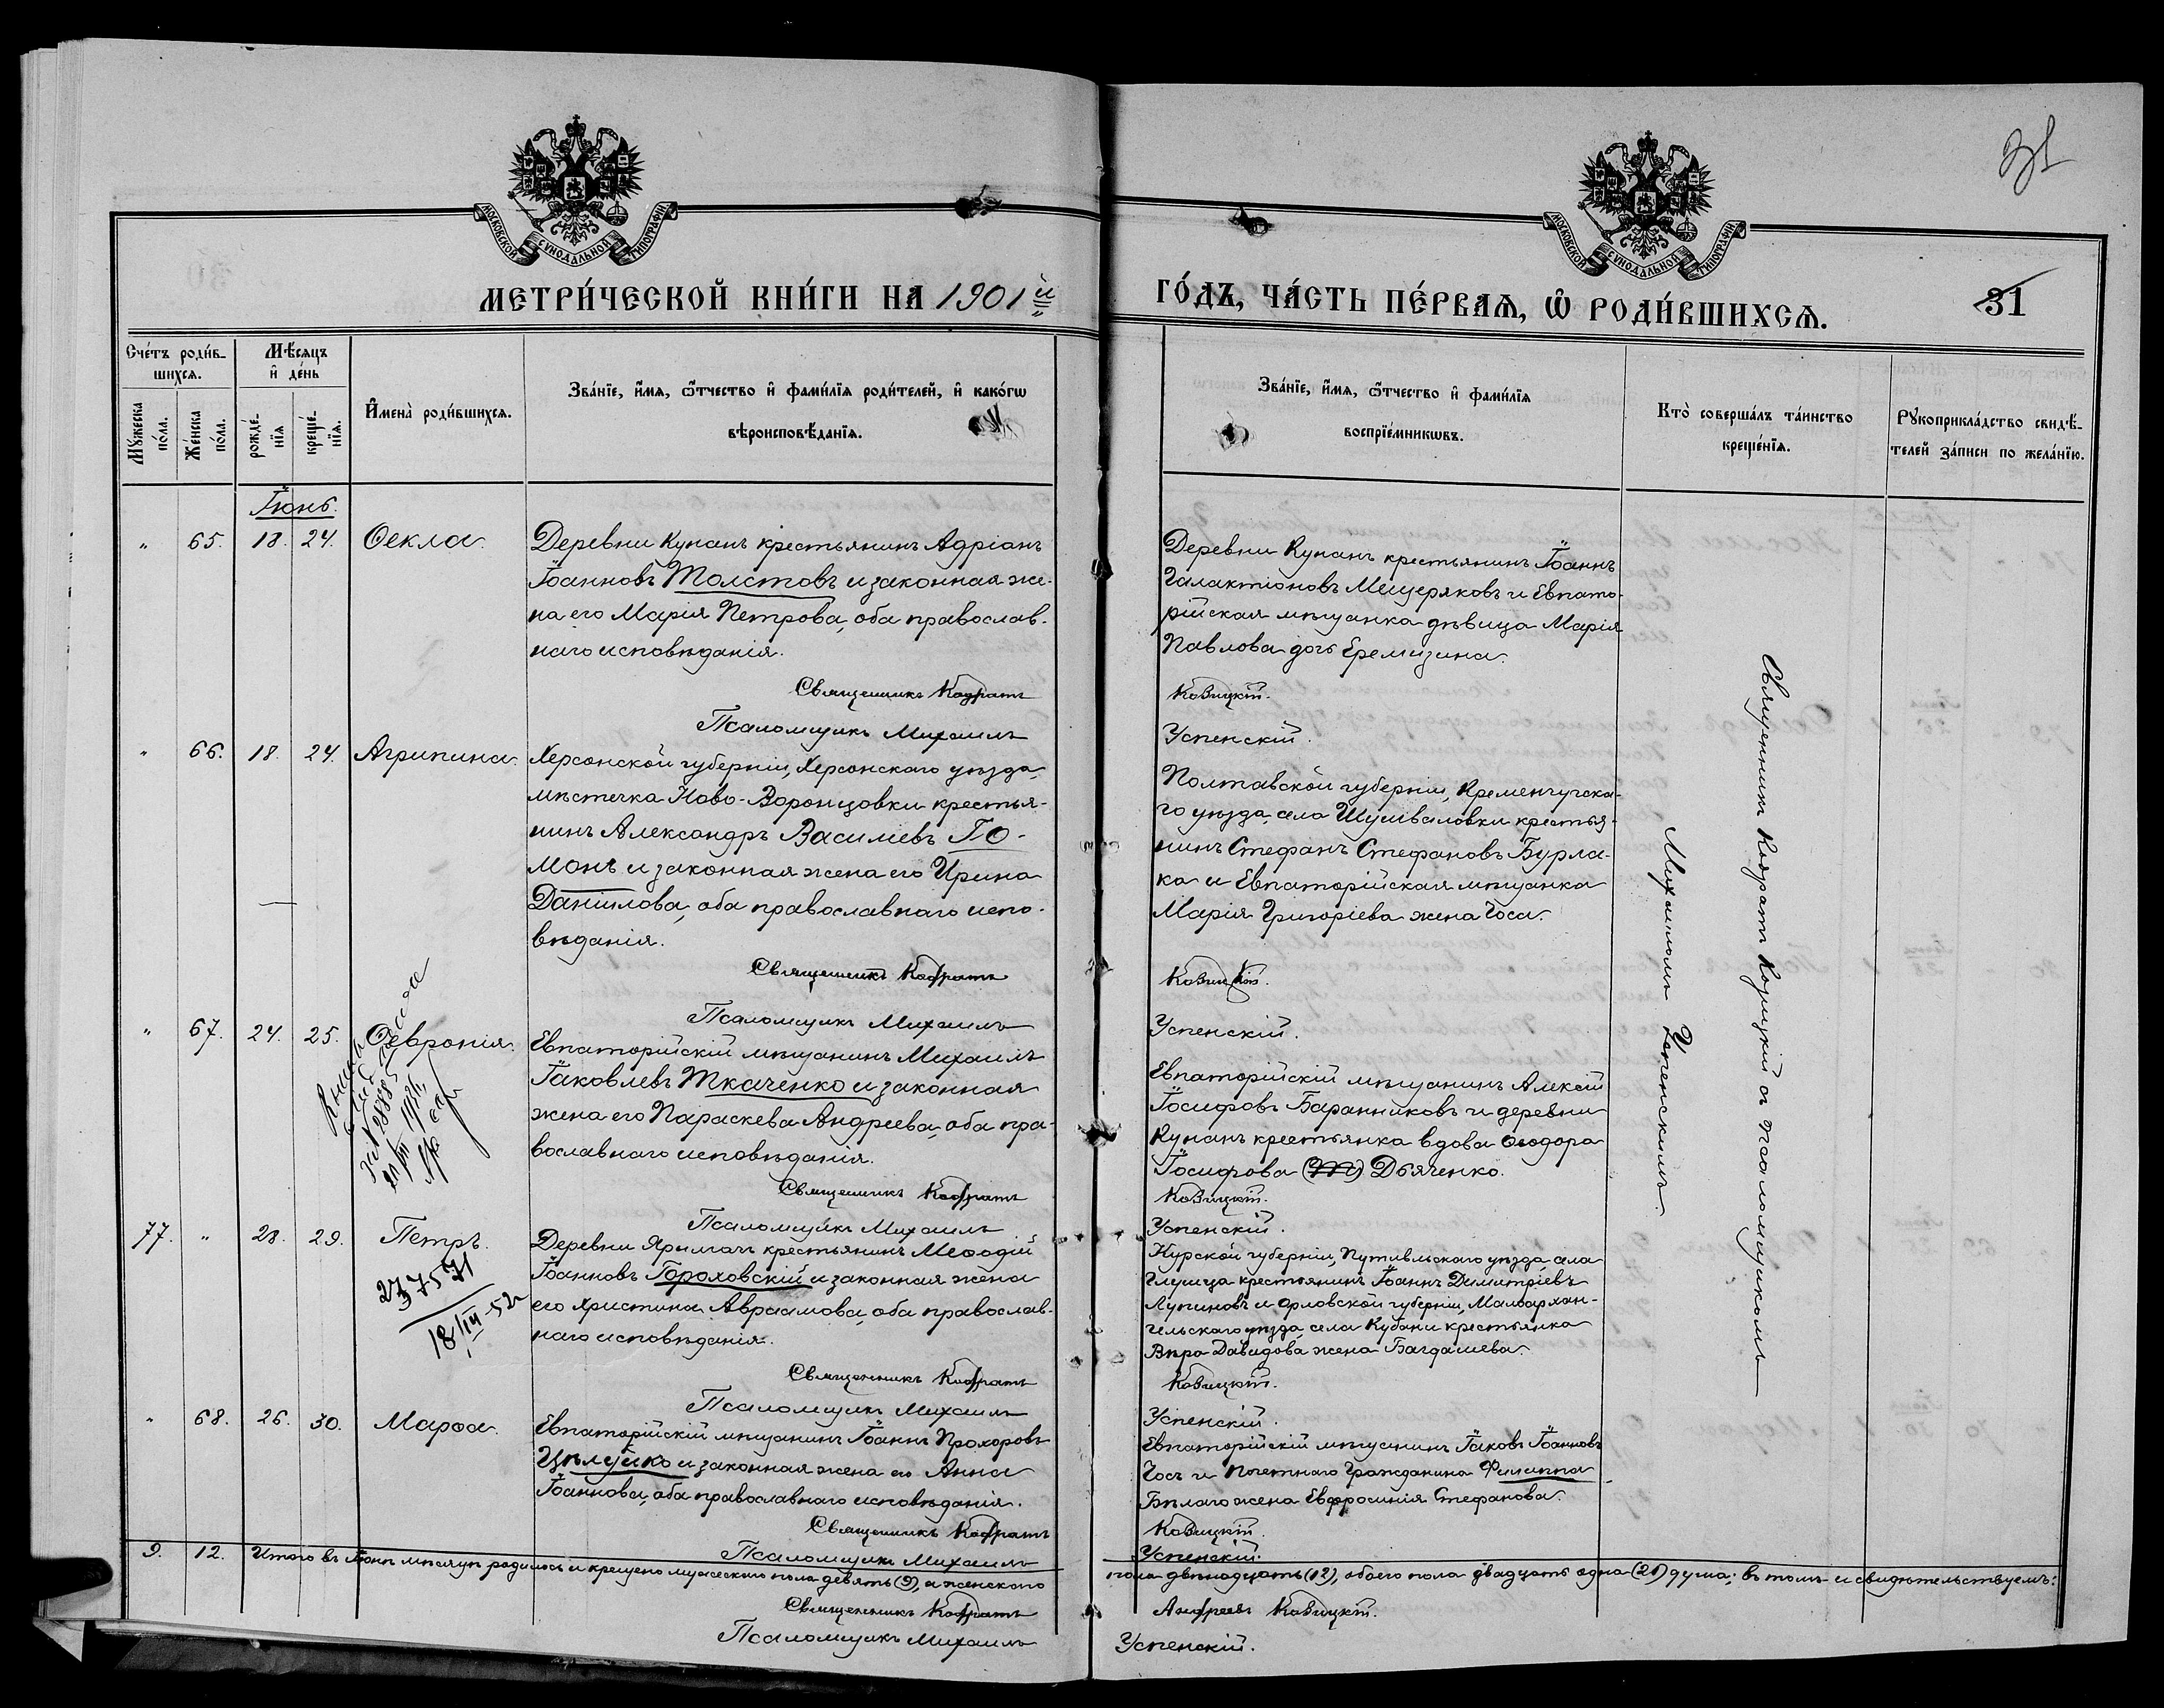 31
МОСКОВСКОЙ СѴНОДАЛЬНОЙ ТИПОГРАФІИ
МОСКОВСКОЙ СѴНОДАЛЬНОЙ ТИПОГРАФІИ
МЕТРИ́ЧЕСКОЙ КНИ́ГИ НА 1901й
ГО́ДЪ, ЧА́СТЬ ПЕ́РВАѦ, Ѡ РОДИ́ВШИХСѦ.
31
Сче́тъ роди́в-
шихсѧ.
Мѣ́сѧцъ
и҆ де́нь
Мꙋ́жеска
по́ла.
Же́нска
по́ла.
рожде́-
нїѧ
креще́-
нїѧ.
И҆мена̀ роди́вшихсѧ.
Зва́нїе, и҆́мѧ, ѻ҆́тчество и҆ фами́лїѧ роди́телей, и҆ како́гѡ
вѣроисповѣ́данїѧ.
Зва́нїе, и҆́мѧ, ѻ҆́тчество и҆ фами́лїѧ
воспрїе́мникѡвъ.
Кто̀ соверша́лъ та́инство
креще́нїѧ.
Рꙋкоприкла́дство свидѣ́-
телей за́писи по жела́нїю.
Іюнь.
" 65. 18. 24. Ѳекла.
Деревни Кунанъ крестьянинъ Адріанъ
Іоанновъ Толстовъ и законная же-
на его Марія Петрова, оба православ-
наго исповѣданія.
Священникъ Кодратъ
Псаломщикъ Михаилъ
Деревни Кунанъ крестьянинъ Іоаннъ
Галактіоновъ Мещеряковъ и Евпато-
рійская мѣщанка дѣвица Марія
Павлова дочь Еремизина.
Козицкій.
Успенскій.
" 66. 18. 24. Агрипина.
Херсонской губерніи, Херсонскаго уѣзда,
мѣстечка Ново-Воронцовки крестья-
нинъ Александръ Василіевъ Го-
монъ и законная жена его Ирина
Даніилова, оба православнаго испо-
вѣданія.
Священникъ Кодратъ
Псаломщикъ Михаилъ
Полтавской губерніи, Кременчугска-
го уѣзда, села крестья-
нинъ Стефанъ Стефановъ Бурла-
ка и Евпаторійская мѣщанка
Марія Григоріева жена Чоса.
Козицкій.
Успенскій.
" 67. 24. 25. Ѳевронія.
1936
Евпаторійскій мѣщанинъ Михаилъ
Іаковлевъ Ткаченко и законная
жена его Параскева Андреева, оба пра-
вославнаго исповѣданія.
Священникъ Кодратъ
Псаломщикъ Михаилъ
Евпаторійскій мѣщанинъ Алексій
Іосифовъ Баранниковъ и деревни
Кунанъ крестьянка вдова Ѳеодора
Іосифова Дьяченко.
Козицкій.
Успенскій.
77. " 28. 29. Петръ.
18/III-52
Деревни Ярылгачъ крестьянинъ Меѳодій
Іоанновъ Гороховскій и законная жена
его Христина Авраамова, оба православ-
наго исповѣданія.
Священникъ Кодратъ
Псаломщикъ Михаилъ
Курской губерніи, Путивльскаго уѣзда, села
Глушца крестьянинъ Іоаннъ Димитріевъ
Лупиновъ и Орловской губерніи, Малоархан-
гельскаго уѣзда, села Кубани крестьянка
Вѣра Давидова жена Багдашева.
Козицкій.
Успенскій.
" 68. 26. 30. Марѳа.
Евпаторійскій мѣщанинъ Іоаннъ Прохоровъ
Цѣлуйко и законная жена его Анна
Іоаннова, оба православнаго исповѣданія.
Священникъ Кодратъ
Псаломщикъ Михаилъ
Евпаторійскій мѣщанинъ Іаковъ Іоанновъ
Чосъ и Почетнаго Гражданина Филиппа
Бѣлаго жена Евфросинія Стефанова.
Козицкій.
Успенскій.
Священникъ Кодратъ Козицкій съ псаломщикомъ
Михаиломъ Успенскимъ.
9. 12. Итого въ Іюнѣ мѣсяцѣ родилось и крещено мужескаго пола девять (9), а женскаго
пола двѣнадцать (12), обоего пола двадцать одна (21) душа; въ томъ и свидѣтельствуемъ:
Священникъ Кодратъ
Андреевъ Козицкій.
Псаломщикъ Михаилъ
Успенскій.